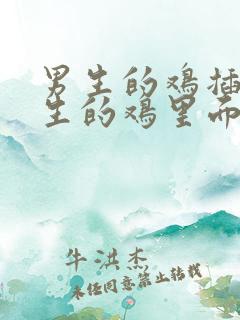 男生的鸡插
生的鸡里面
牛洪杰
未经同意禁止转载